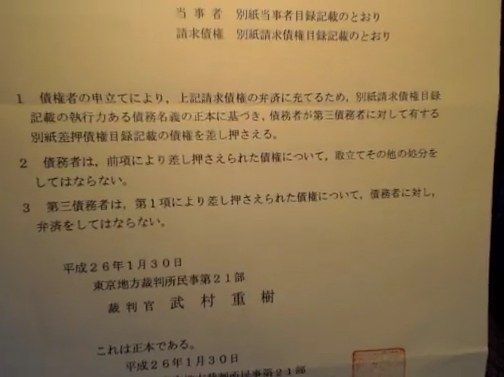 当事者　別紙当事者目録記載のとおり
請求債権　別紙請求債権目録記載のとおり
１　債権者の申立てにより，上記請求債権の弁済に充てるため，別紙請求債権目録
記載の執行力ある債務名義の正本に基づき，債務者が第三債務者に対して有する
別紙差押債権目録記載の債権を差し押さえる。
２　債務者は，前項により差し押さえられた債権について，取立てその他の処分を
してはならない。
３　第三債務者は，第１項により差し押さえられた債権について，債務者に対し，
弁済をしてはならない。
平成２６年１月３０日
東京地方裁判所民事第２１部
裁判官　武村重樹
これは正本である。
平成２６年１月３０日
地方裁判所民事第２１部